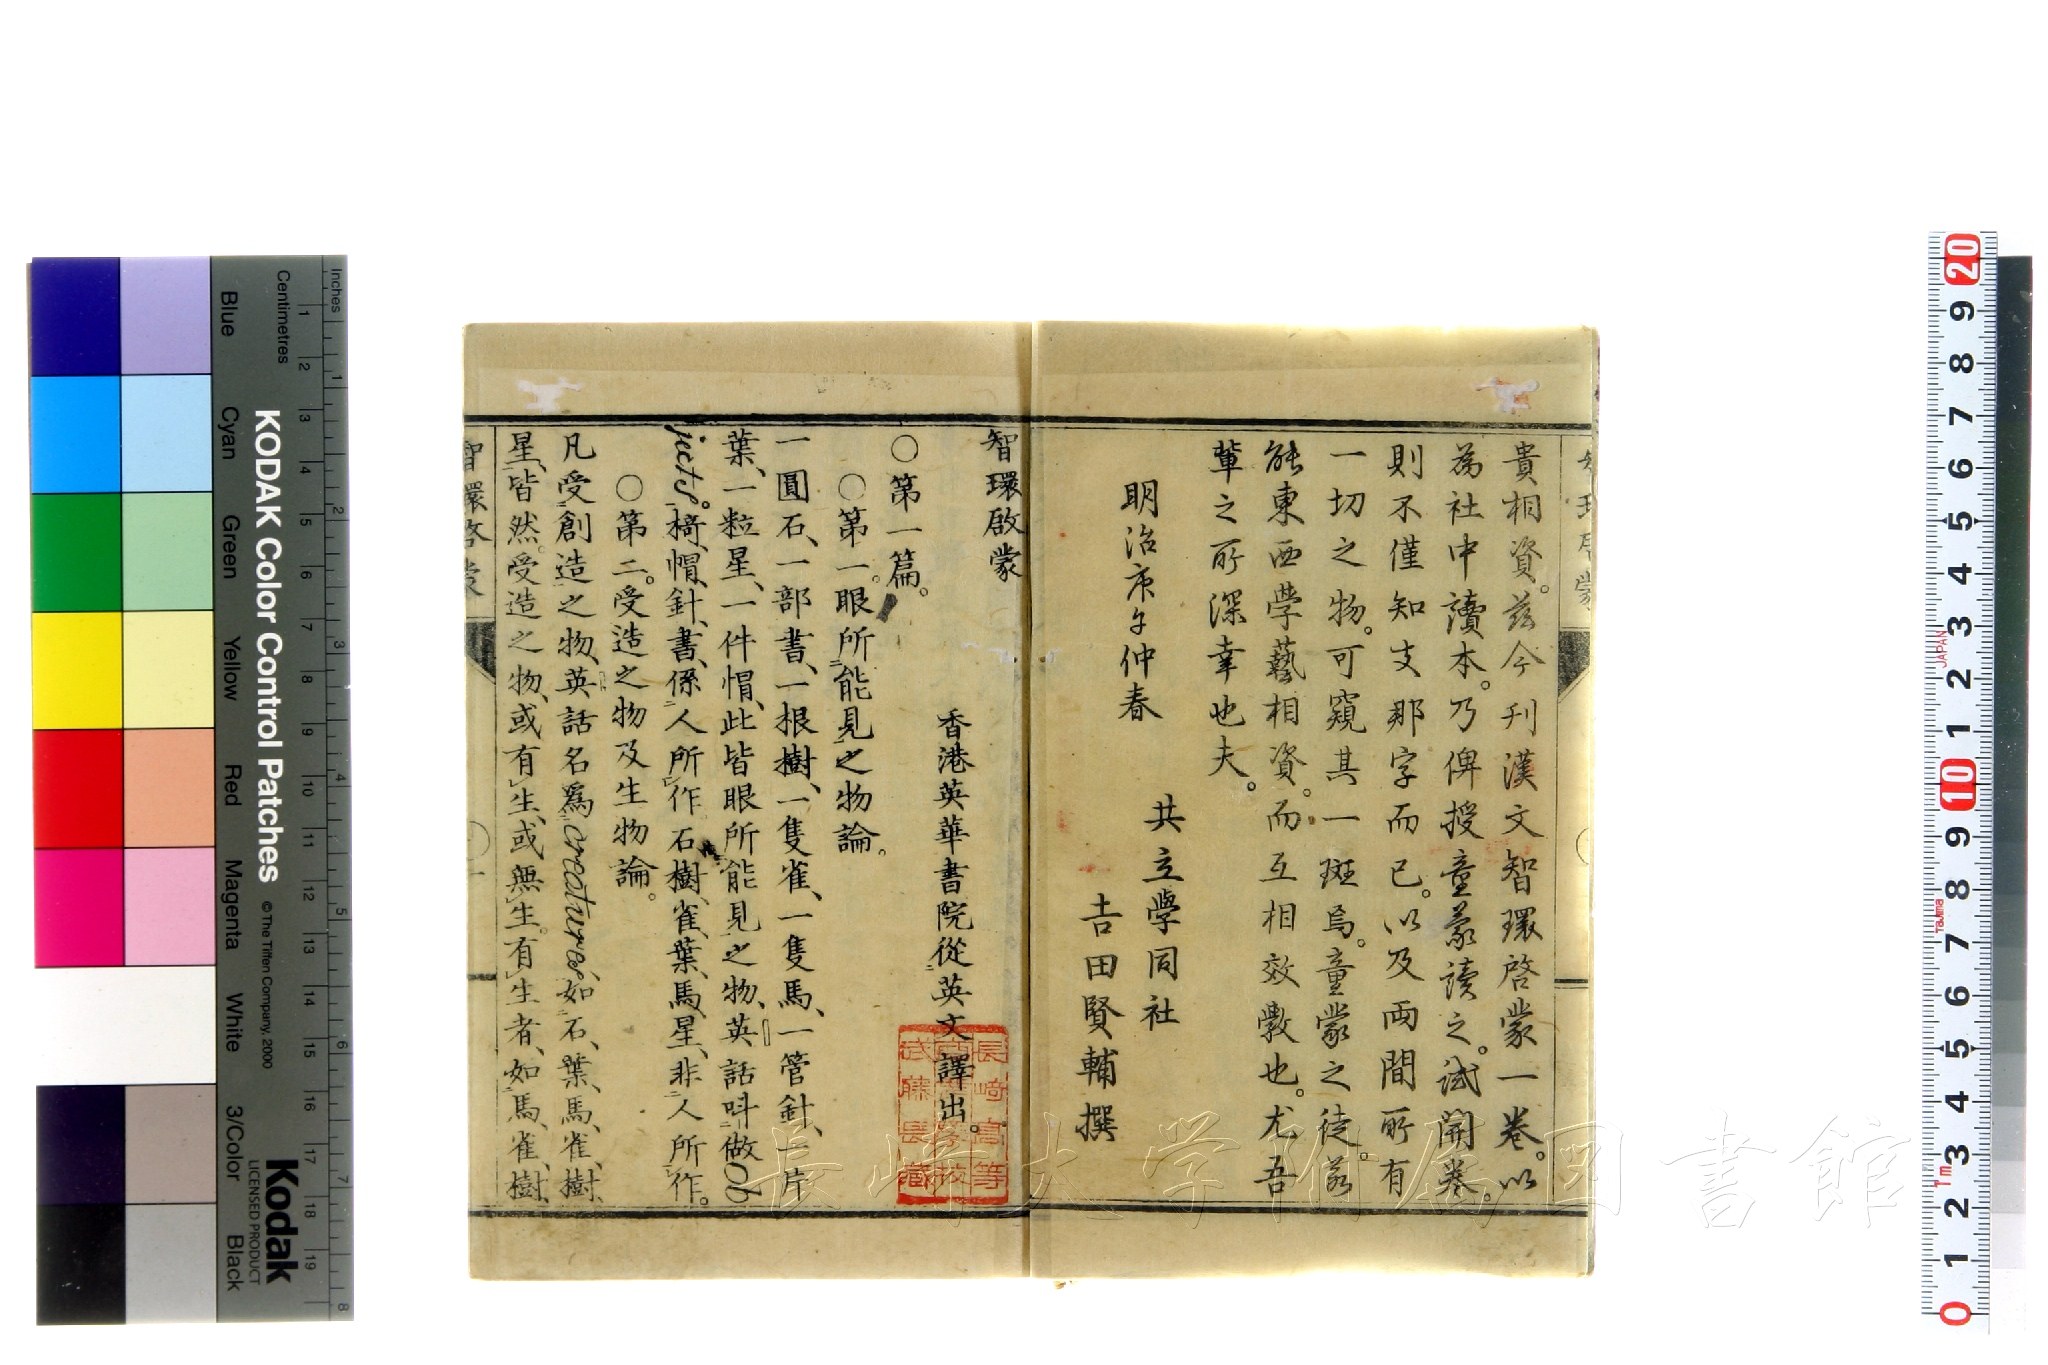 貴相資。茲今刊漢文智環啓蒙一卷。以
為社中讀本。乃俾授童蒙讀之。試開卷。
則不僅知支那字而已。以及両間所有
一切之物。可窺其一斑焉。童蒙之徒。若
能東西學藝相資。而互相效斆也。尤吾
輩之所深幸也夫。
明治庚午仲春
共立學同社
吉田賢輔撰
智環啟蒙
香港英華書院從英文譯出。
〇第一篇。
〇第一。眼所能見之物論。
一圓石、一部書、一根樹、一隻雀、一隻馬、一管針、一片
葉、一粒星、一件帽、此皆眼所能見之物、英話呌做ob
jects。椅、帽、針、書、係人所作、石、樹、雀、葉、馬、星、非人所作。
〇第二。受造之物及生物論。
凡受創造之物、英話名爲creatures、如石、葉、馬、雀、樹、
星、皆然。受造之物、或有生、或無生。有生者、如馬、雀、樹、
智環啓蒙
長崎高等
武藤長藏
長崎大学附属図書館
KODAK Color Control Patches
© The Tiffen Company, 2000
Kodak
LICENSED PRODUCT
Inches
1 2 3 4 5 6 7 8
Centimetres
1 2 3 4 5 6 7 8 9 10 11 12 13 14 15 16 17 18 19
Blue
Cyan
Green
Yellow
Red
Magenta
White
3/Color
Black
20 9 8 7 6 5 4 3 2 1 10 9 8 7 6 5 4 3 2 1 0
JAPAN
Tajima
Tm